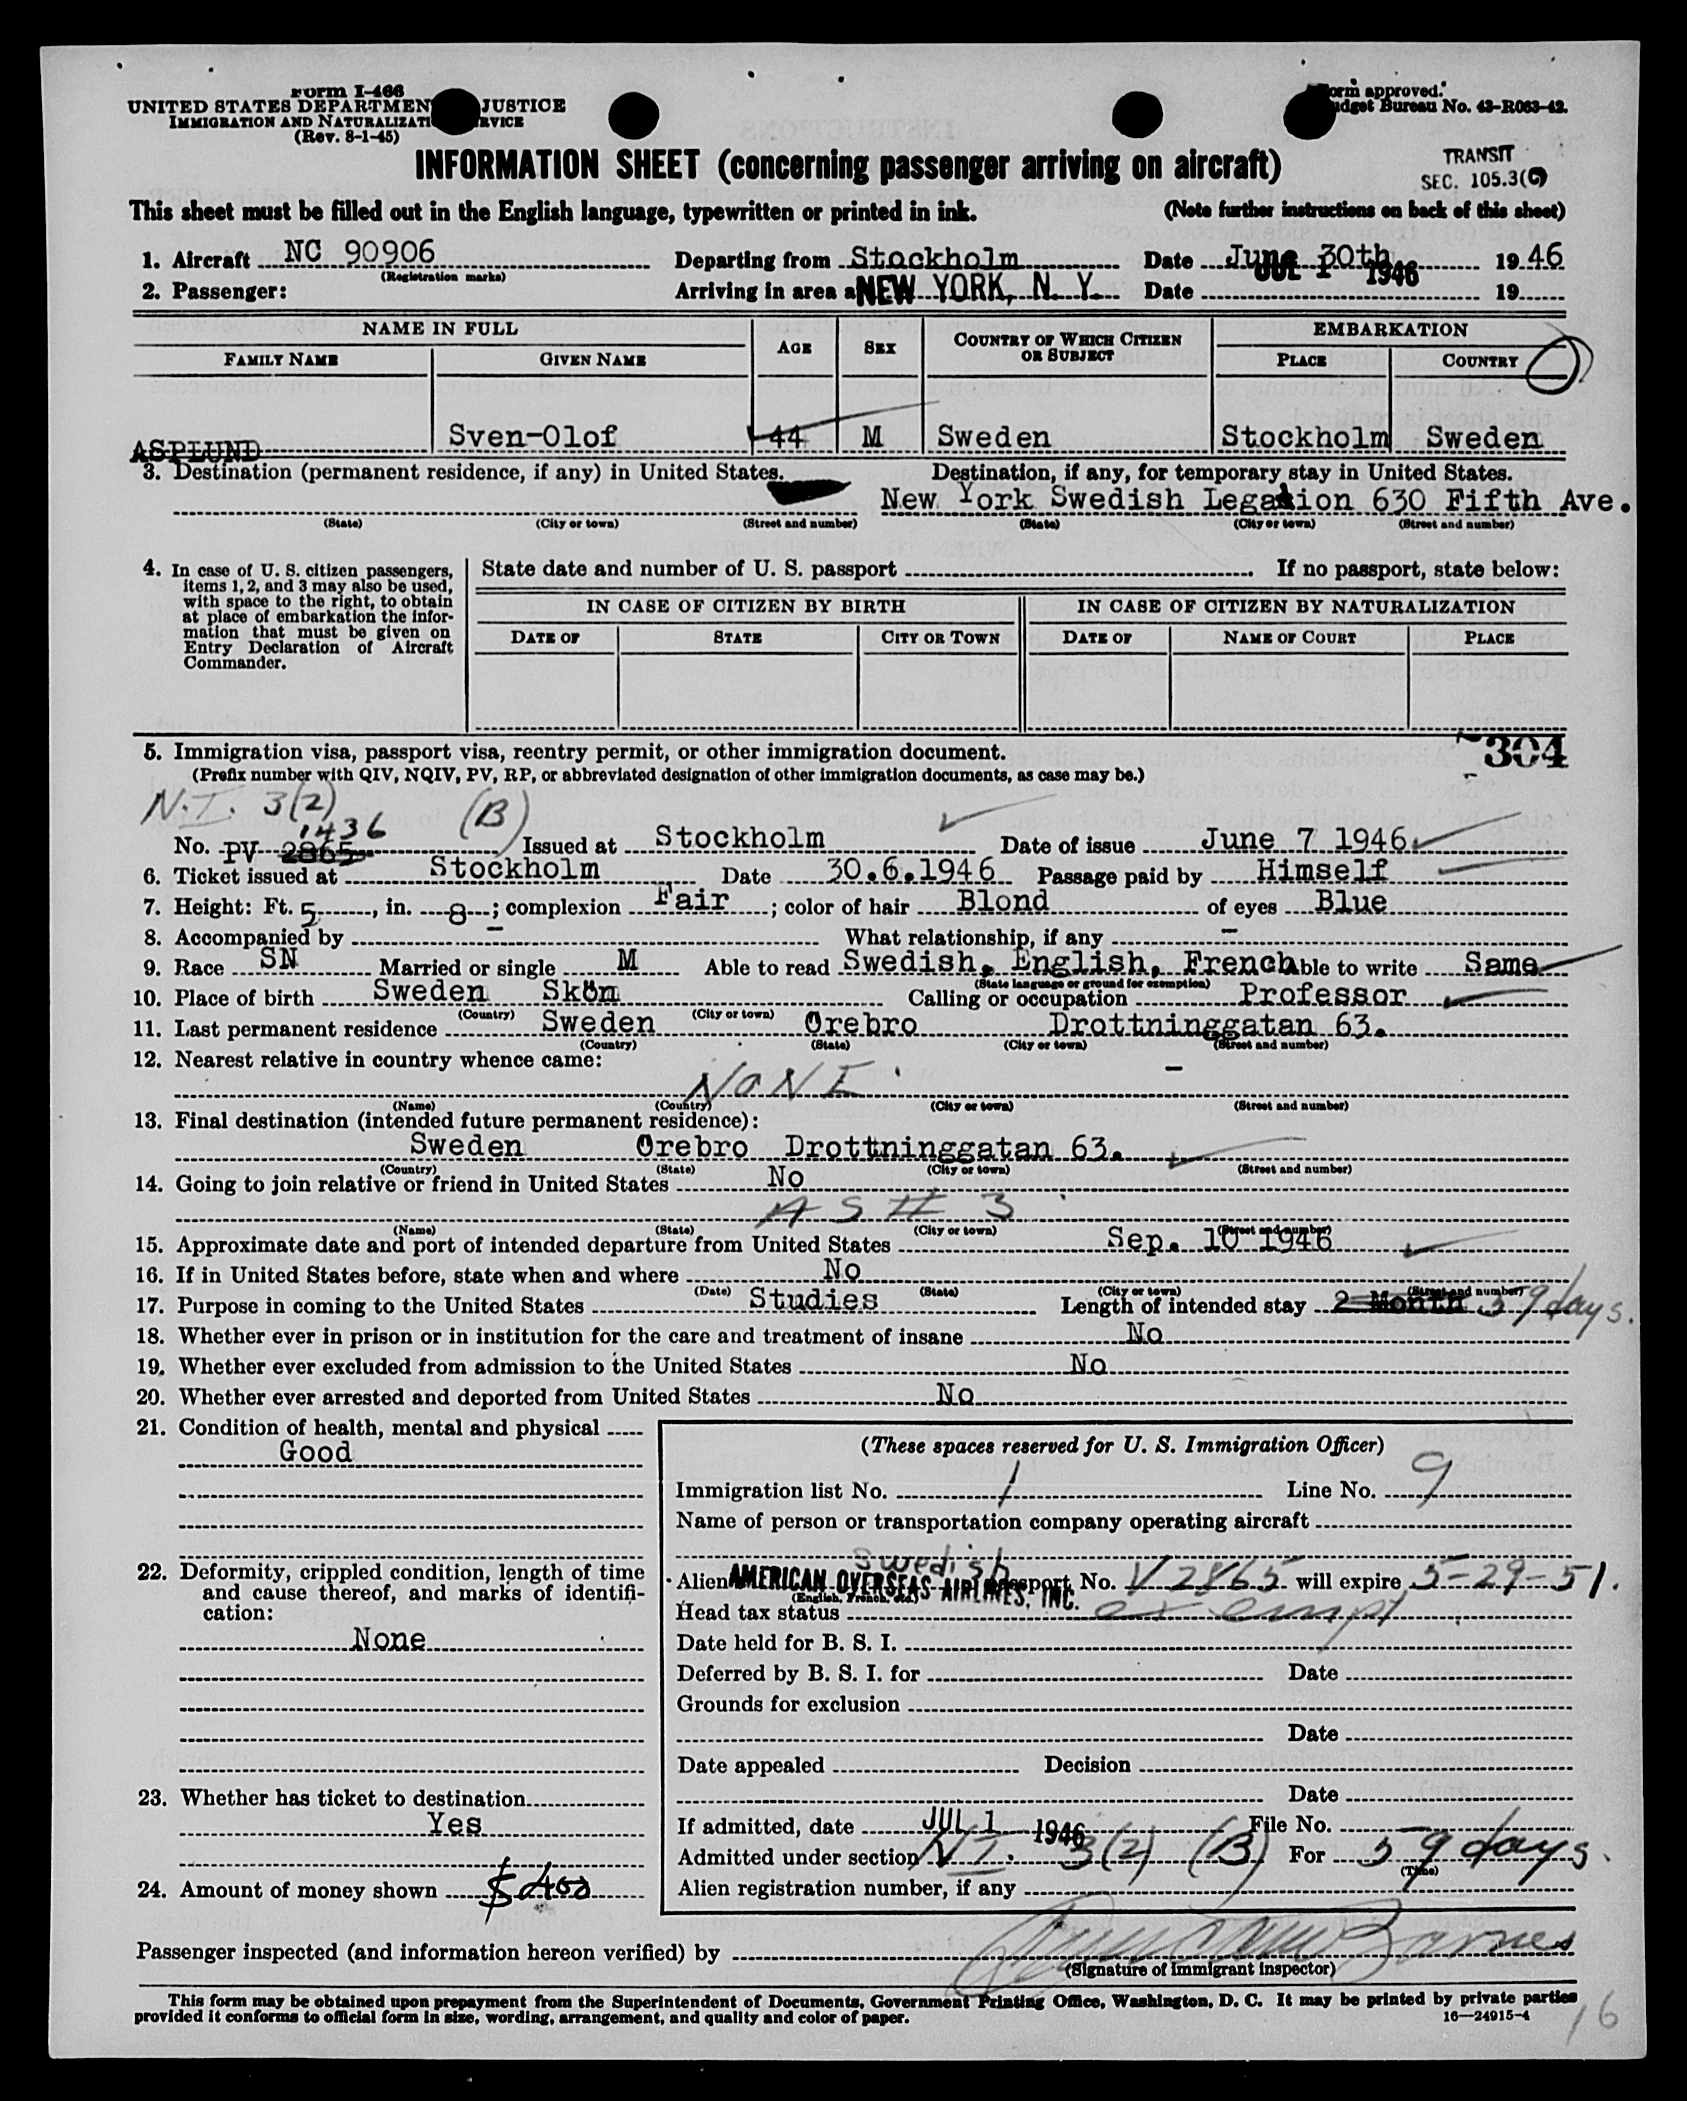 Form I-466
UNITED STATES DEPARTMENT JUSTICE
IMMIGRATION AND NATURALIZATION SERVICE
(Rev. 8-1-45)
Form approved.
Budget Bureau No. 43-R063-42.
INFORMATION SHEET (concerning passenger arriving on aircraft)
TRANSIT
SEC. 105.3(C)
This sheet must be filled out in the English language, typewritten or printed in ink.
(Note further instructions on back of this sheet)
1. Aircraft NC 90906 Departing from Stockholm Date June 30th 19 46
(Registration marks)
2. Passenger: Arriving in area a NEW YORK, N. Y. Date JUL 1 1946 19
NAME IN FULL AGE SEX COUNTRY OF WHICH CITIZEN OR SUBJECT EMBARKATION
FAMILY NAME GIVEN NAME PLACE COUNTRY
ASPLUND Sven-Olof 44 M Sweden Stockholm Sweden
3. Destination (permanent residence, if any) in United States. Destination, if any, for temporary stay in United States.
New York Swedish Legation 630 Fifth Ave.
(State) (City or town) (Street and number) (State) (City or town) (Street and number)
4. In case of U. S. citizen passengers, items 1, 2, and 3 may also be used, with space to the right, to obtain at place of embarkation the information that must be given on Entry Declaration of Aircraft Commander.
State date and number of U. S. passport If no passport, state below:
IN CASE OF CITIZEN BY BIRTH IN CASE OF CITIZEN BY NATURALIZATION
DATE OF STATE CITY OR TOWN DATE OF NAME OF COURT PLACE
304
5. Immigration visa, passport visa, reentry permit, or other immigration document.
(Prefix number with QIV, NQIV, PV, RP, or abbreviated designation of other immigration documents, as case may be.)
N.I. 3(2) (B)
1436
No. PV 2865 Issued at Stockholm Date of issue June 7 1946
6. Ticket issued at Stockholm Date 30.6.1946 Passage paid by Himself
7. Height: Ft. 5, in. 8; complexion Fair; color of hair Blond of eyes Blue
8. Accompanied by - What relationship, if any -
9. Race SN Married or single M Able to read Swedish, English, French Able to write Same
(State language or ground for exemption)
10. Place of birth Sweden Skön Calling or occupation Professor
(Country) (City or town)
11. Last permanent residence Sweden Örebro Drottninggatan 63.
(Country) (State) (City or town) (Street and number)
12. Nearest relative in country whence came:
NONE -
(Name) (Country) (City or town) (Street and number)
13. Final destination (intended future permanent residence):
Sweden Örebro Drottninggatan 63.
(Country) (State) (City or town) (Street and number)
14. Going to join relative or friend in United States No
AS # 3
(Name) (State) (City or town) (Street and number)
15. Approximate date and port of intended departure from United States Sep. 10 1946
16. If in United States before, state when and where No
(Date) (State) (City or town) (Street and number)
17. Purpose in coming to the United States Studies Length of intended stay 2 Month 59 days.
18. Whether ever in prison or in institution for the care and treatment of insane No
19. Whether ever excluded from admission to the United States No
20. Whether ever arrested and deported from United States No
21. Condition of health, mental and physical
Good
22. Deformity, crippled condition, length of time and cause thereof, and marks of identification:
None
23. Whether has ticket to destination
Yes
24. Amount of money shown $400
(These spaces reserved for U. S. Immigration Officer)
Immigration list No. 1 Line No. 9
Name of person or transportation company operating aircraft
Swedish
AMERICAN OVERSEAS AIRLINES, INC.
Alien passport No. V 2865 will expire 5-29-51.
(English, French, etc.)
Head tax status exempt
Date held for B. S. I.
Deferred by B. S. I. for Date
Grounds for exclusion
Date
Date appealed Decision
Date
If admitted, date JUL 1 1946 File No.
Admitted under section N I. 3(2) (B) For 59 days.
(Time)
Alien registration number, if any
Passenger inspected (and information hereon verified) by Barnes
(Signature of immigrant inspector)
This form may be obtained upon prepayment from the Superintendent of Documents, Government Printing Office, Washington, D. C. It may be printed by private parties
provided it conforms to official form in size, wording, arrangement, and quality and color of paper.
16—24915-4
16